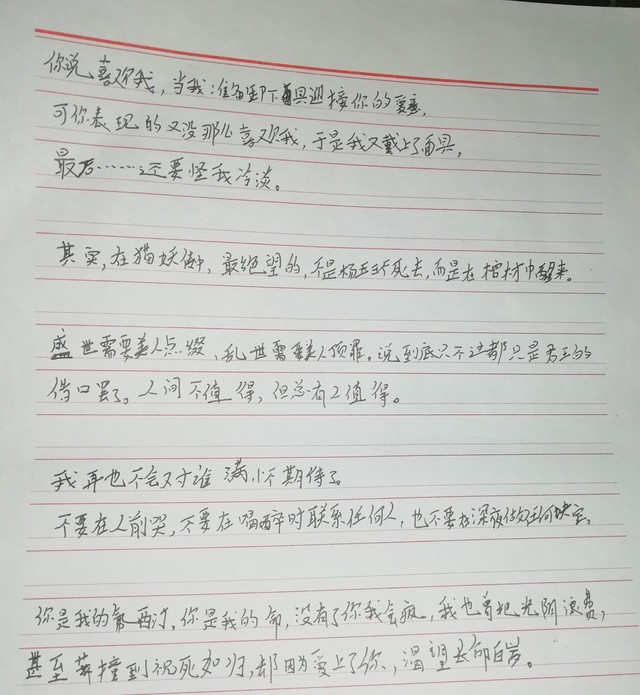 你说喜欢我，当我准备卸下面具迎接你的爱意，
可你表现的又没那么喜欢我，于是我又戴上了面具，
最后……还要怪我冷淡。
其实，在猫妖传中，最绝望的，不是杨玉环死去，而是在棺材中醒来。
盛世需要美人点缀，乱世需要美人顶罪。说到底只不过都只是君王的
借口罢了。人间不值得，但总有人值得。
我再也不会对谁满怀期待了。
不要在人前哭，不要在喝醉时联系任何人，也不要在深夜做任何决定。
你是我的，你是我的命，没有了你我会疯，我也曾把光阴浪费，
甚至莽撞到视死如归，却因为爱上了你，渴望长命百岁。